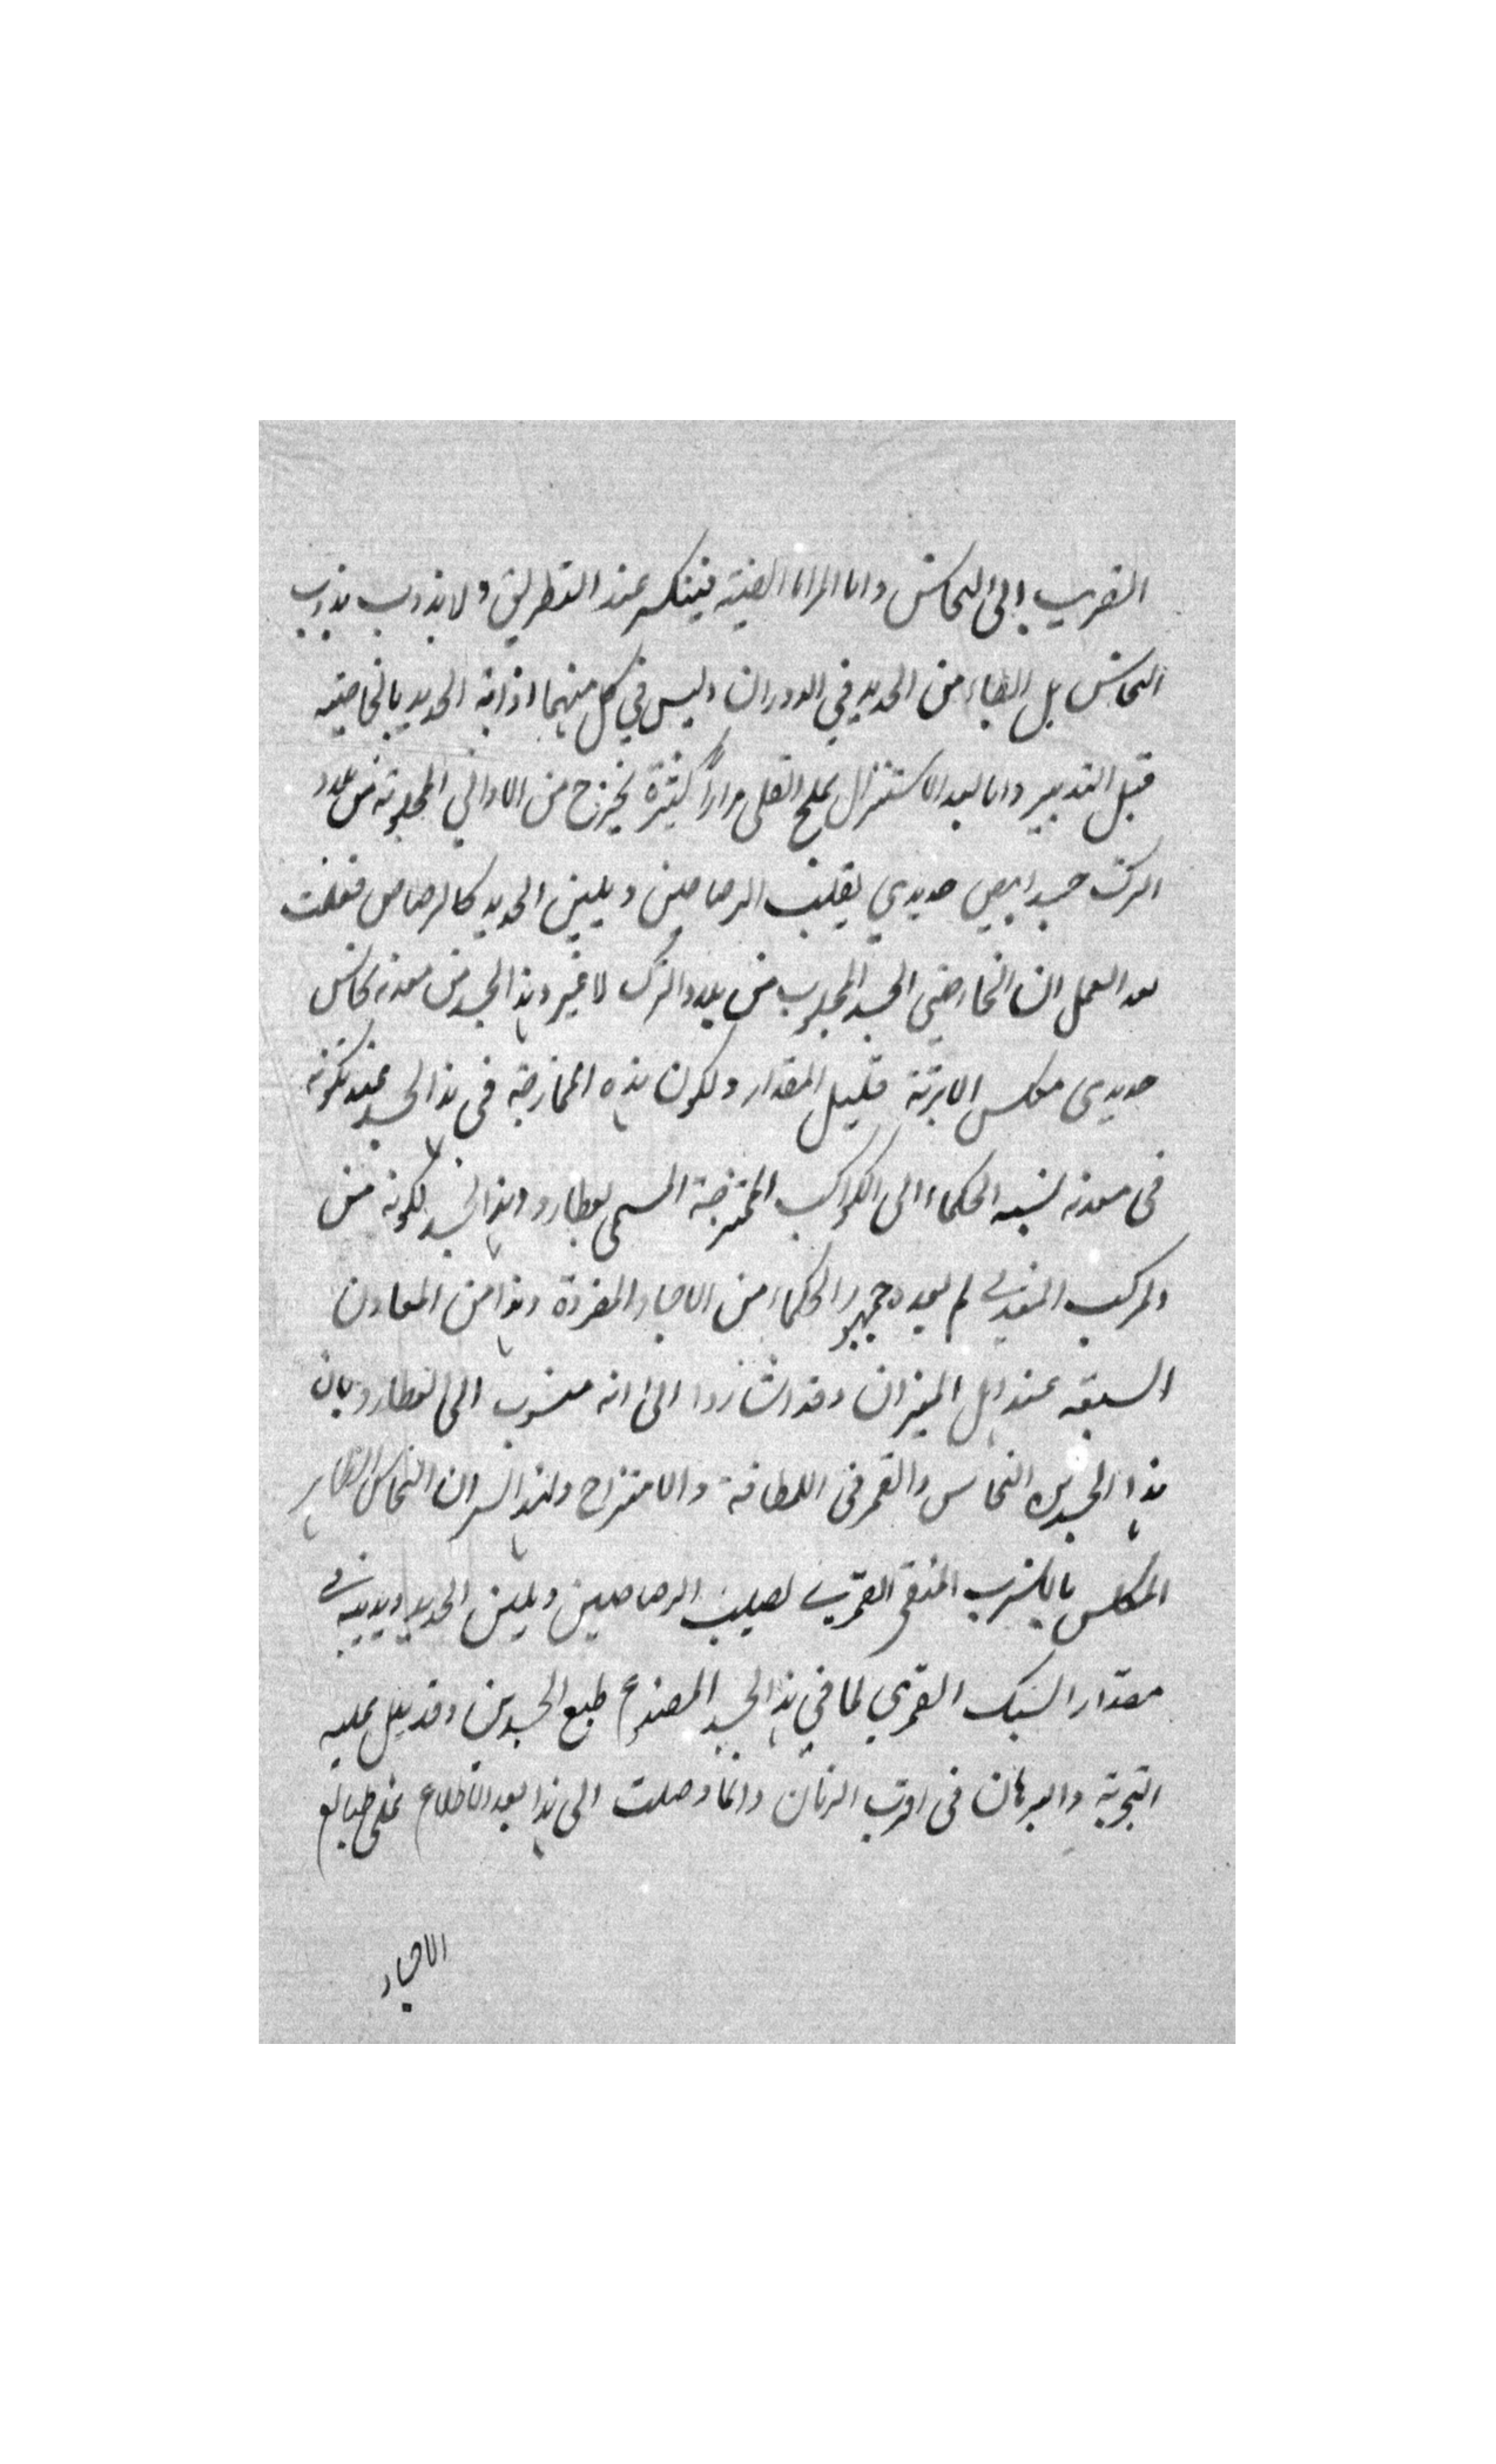 القريب الى النحاس واما المرايا الصينية فينكسر عند التطريق ولا يذوب بذوب
النحاس بل ابطاء من الحديد في الدوران وليس في كل منهما اذابة الحديد بالخاصية
قبل التدبير واما بعد الاستنزال بملح القلى مراراً كثيرة يخرج من الاواني المجلوبة من بلاد
الترك جسد ابيض حديدي يقلب الرصاصين ويلين الحديد كالرصاص فعلمت
بعد العمل ان الخارصيني الجسد المجلوب من بلاد الترك لا غير وهذا الجسد من معدنه نحاس
حديدى مكلس الابرئة قليل المقدار ولكون هذه الممازجة في هذا الجسد عند تكونه
في معدنه نسبه الحكماء الى الكواكب الممتزجة المسمى بعطارد وهذا الجسد لكونه من
المركب المعدني لم يعده جمهور الحكماء من الاجساد المفردة وهذا من المعادن
السبعة عند اهل الميزان وقد اشاروا الى انه منسوب الى العطارد بان
هذا الجسد من النحاس والقمر في اللطافة والامتزاج ولهذا السر ان النحاس الطاهر
المكلس بالكبريت المنقى القمري يصلب الرصاصين ويلين الحديد ويذيبه في
مقدار السبك القمري لما في هذا الجسد المصنوع طبع الجسدين وقد يدل عليه
التجربة والبرهان في اقرب الزمان وانما وصلت الى هذا بعد الاطلاع على طبايع
الاجساد